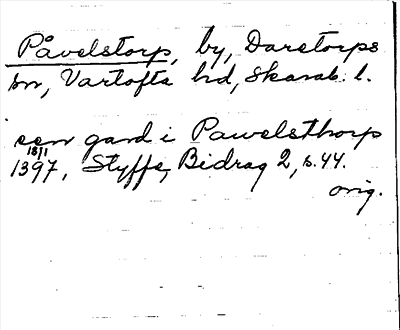 Påvelstorp, by, Daretorps
sn, Vartofta hd, Skarab. l.
een gard i Pawelsthorp
18/1
1397, Styffe, Bidrag 2, s. 44.
orig.